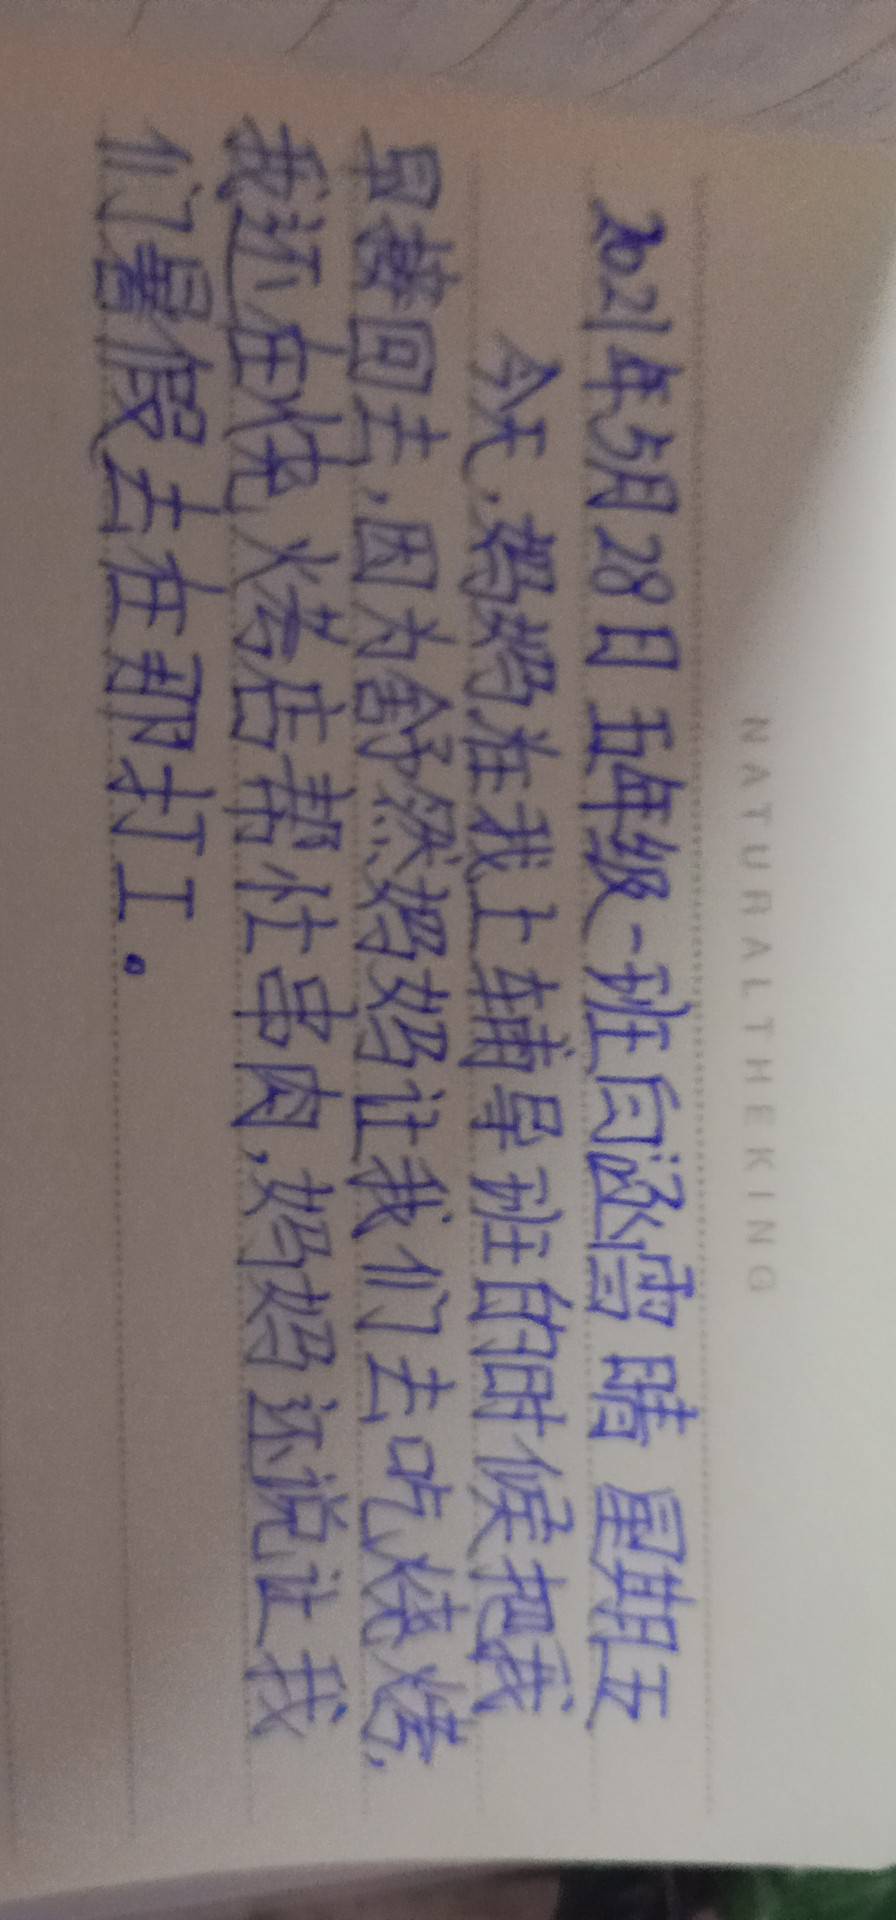 NATURALTHEKING
2021年5月28日 五年级一班闫涵雪 晴 星期五
今天,妈妈在我上辅导班的时候把我
早接回去,因为舒然妈妈让我们去吃烧烤,
我还在烧烤店帮忙串肉,妈妈还说让我
们暑假去在那打工。